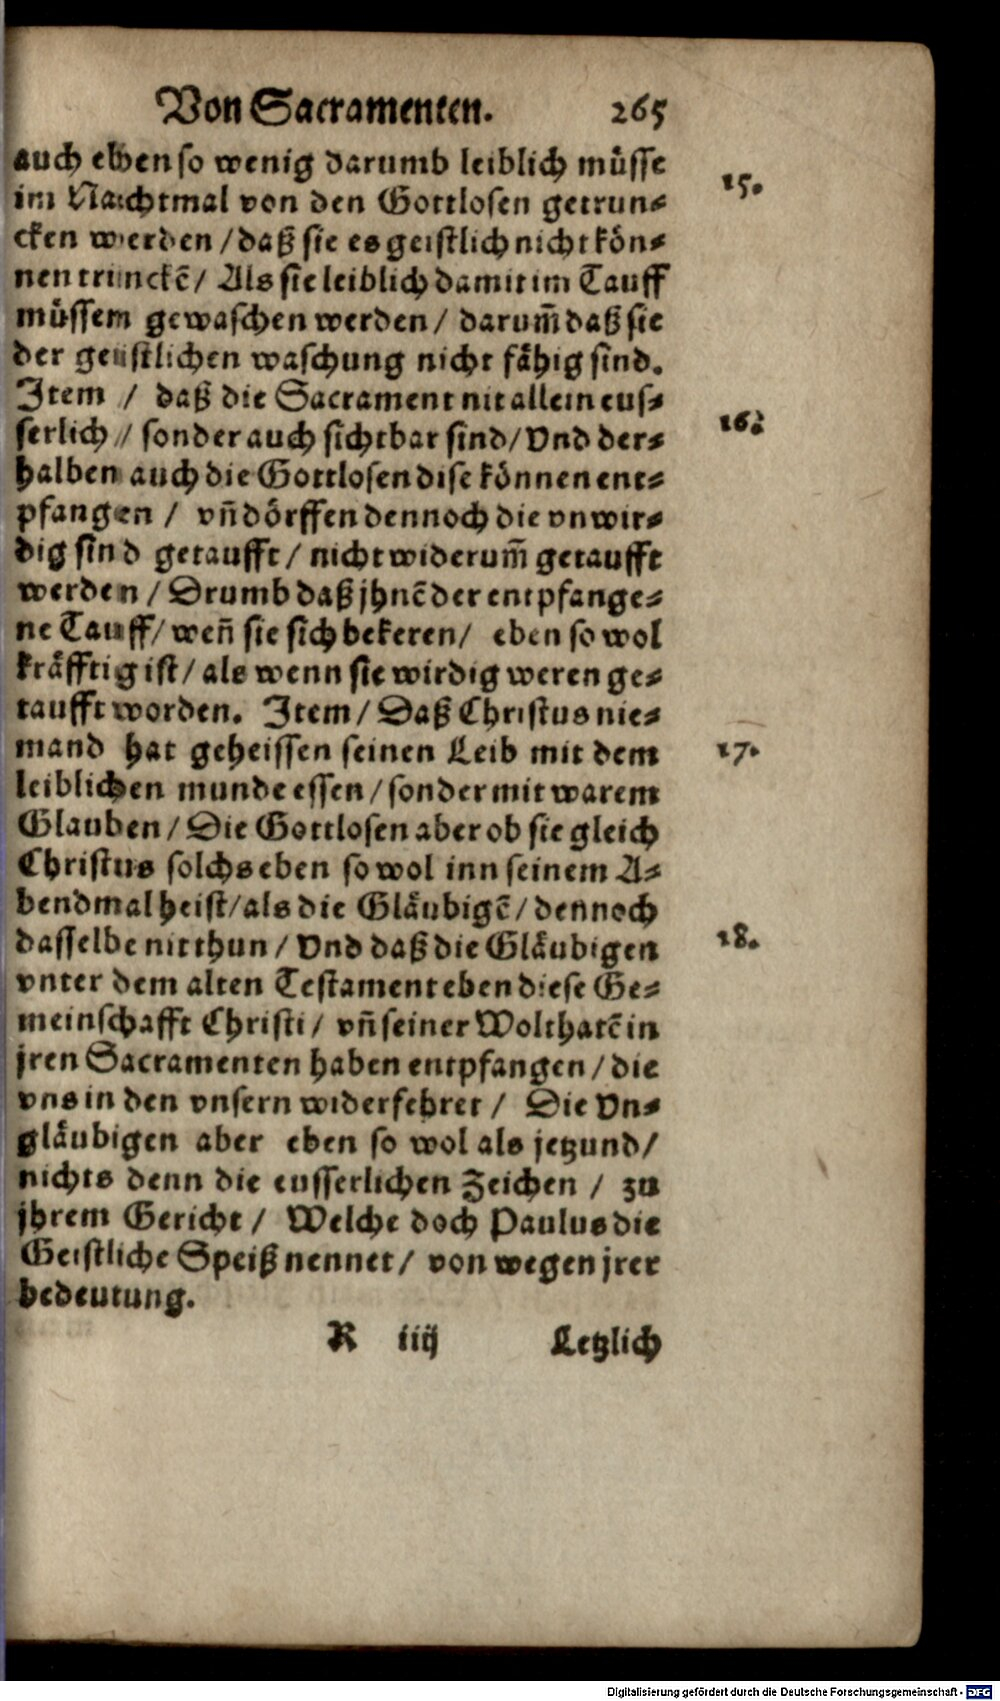 Von Sacramenten. 265
auch eben so wenig darumb leiblich müsse
15.
im Nachtmal von den Gottlosen getrun⸗
cken werden / daß sie es geistlich nicht kön⸗
nen trinckẽ / Als sie leiblich damit im Tauff
müssem gewaschen werden / darum̃ daß sie
der geistlichen waschung nicht fähig sind.
Item / daß die Sacrament nit allein eus⸗
16.
serlich / sonder auch sichtbar sind / Vnd der⸗
halben auch die Gottlosen dise können ent⸗
pfangen / vñ dörffen dennoch die vnwir⸗
dig sind getaufft / nicht widerum̃ getaufft
werden / Drumb daß jhnẽ der entpfange⸗
ne Tauff / weñ sie sich bekeren / eben so wol
kräfftig ist / als wenn sie wirdig weren ge⸗
taufft worden. Item / Daß Christus nie⸗
mand hat geheissen seinen Leib mit dem
17.
leiblichen munde essen / sonder mit warem
Glauben / Die Gottlosen aber ob sie gleich
Christus solchs eben so wol inn seinem A⸗
bendmal heist / als die Gläubigẽ / dennoch
dasselbe nit thun / Vnd daß die Gläubigen
18.
vnter dem alten Testament eben diese Ge⸗
meinschafft Christi / vñ seiner Wolthatẽ in
jren Sacramenten haben entpfangen / die
vns in den vnsern widerfehret / Die Vn⸗
gläubigen aber eben so wol als jetzund /
nichts denn die eusserlichen Zeichen / zu
jhrem Gericht / Welche doch Paulus die
Geistliche Speiß nennet / von wegen jrer
bedeutung.
R iiij Letzlich
Digitalisierung gefördert durch die Deutsche Forschungsgemeinschaft - DFG